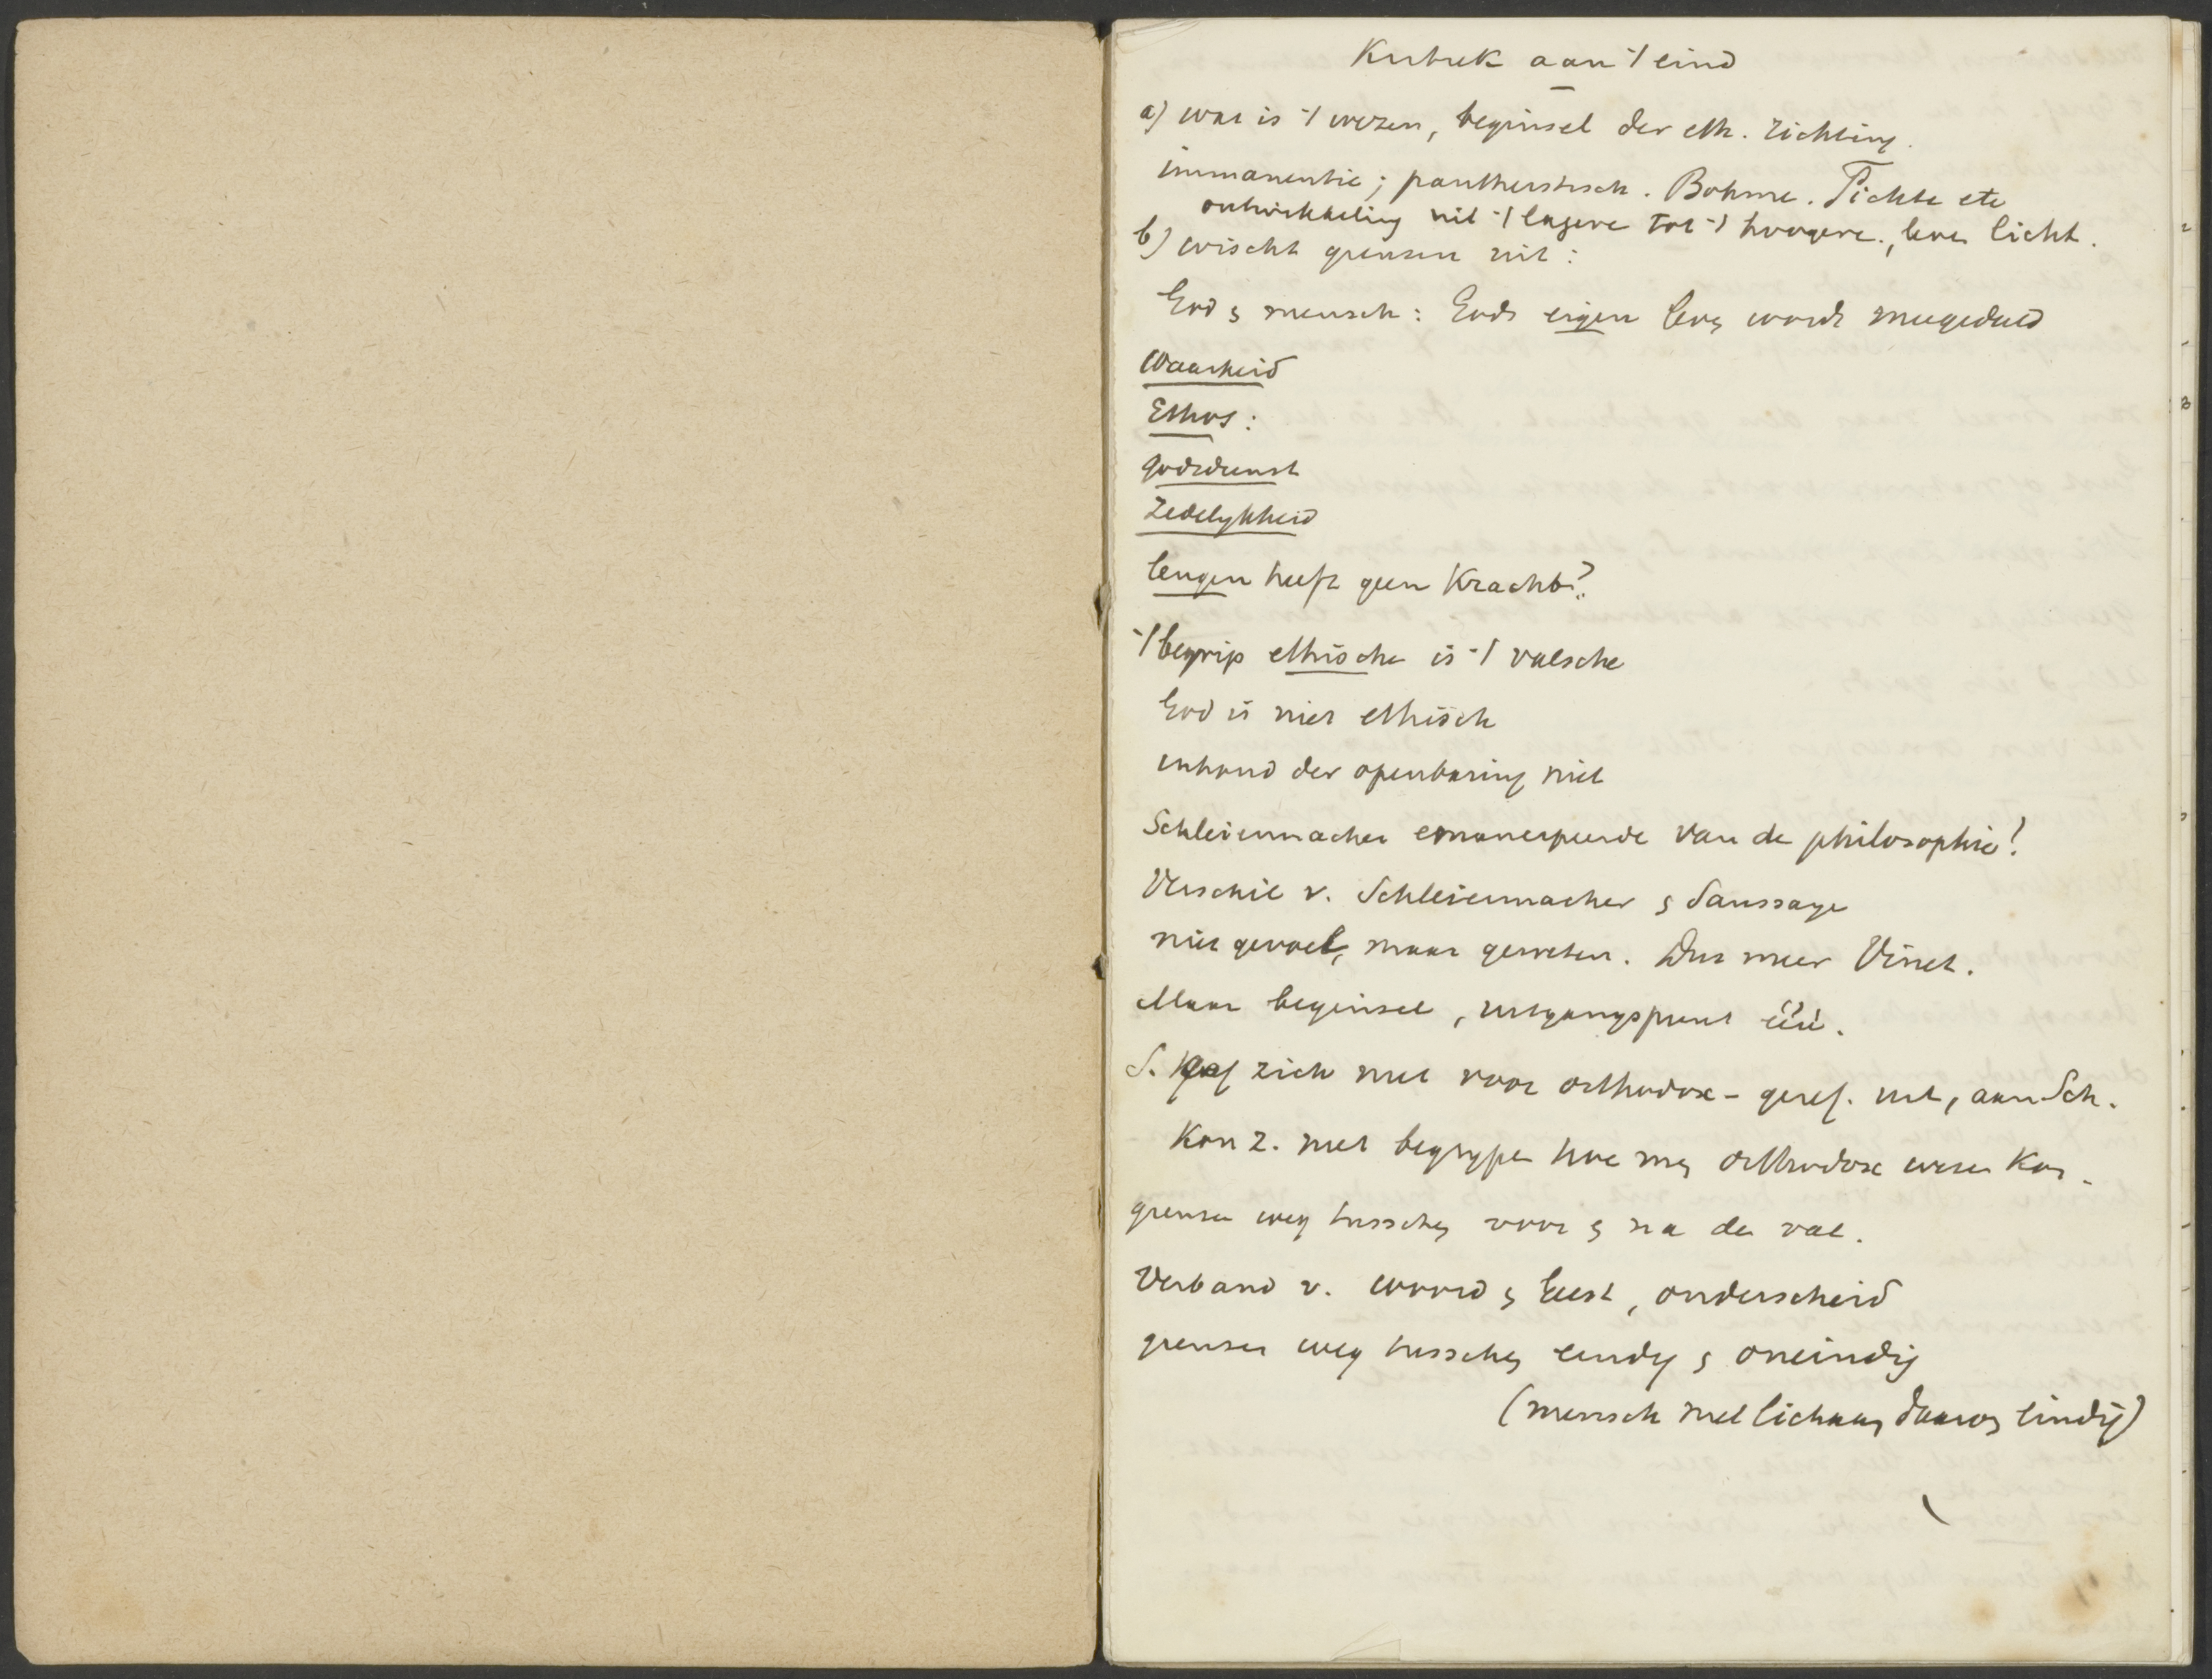 Kritiek aan 't eind
a) wat is 't wezen, beginsel der eth. richting.
immanentie; pantheistisch. Böhme. Fichte etc
ontwikkeling uit 't lagere tot 't hoogere., leven licht.
b) wischt grenzen uit:
God & mensch: Gods eigen leven wordt meegedeeld
Waarheid
Ethos:
godsdienst
Zedelykheid
leugen heeft geen Kracht?
't begrip ethische is 't valsche
God is niet ethisch
inhoud der openbaring niet
Schleiermacher emancipeerde van de philosophie?
Verschil v. Schleiermacher & Saussaye
niet gevoel, maar geweten. Dus meer Vinet.
Maar beginsel, uitgangspunt één.
S. gaf zich niet voor orthodox-geref. uit, aan Sch.
Kon z. niet begrypen hoe men orthodox wezen Kon.
grenzen weg tusschen voor & na de val.
Verband v. woord & Geest, onderscheid
grenzen weg tusschen eindig & oneindig
(mensch met lichaam daarom eindig)